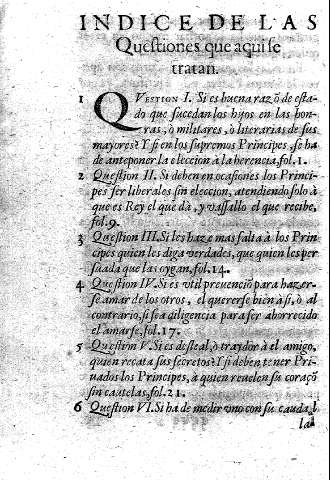 INDICE DE LAS
Questiones que aqui se
tratan.
1 QVESTION I. Si es buena razõ de esta-
do que sucedan los hijos en las hon-
ras, ò militares, ò literarias de sus
mayores? Y si en los supremos Principes, se ha
de anteponer la eleccion à la herencia, fol. 1.
2 Question II. Si deben en ocasiones los Princi-
pes ser liberales sin eleccion, atendiendo solo à
que es Rey el que dà, y vassallo el que recibe,
fol. 9.
3 Question III. Si les haze mas falta à los Prin
cipes quien les diga verdades, que quien les per
suada que las oygan, fol. 14.
4 Question IV. Si es vtil preuenciõ para hazer-
se amar de los otros, el quererse bien à si, ò al
contrario, si sea diligencia para ser aborrecido
el amarse, fol. 17.
5 Question V. Si es desleal, ò traydor à el amigo,
quien recata sus secretos? Y si deben tener Pri-
uados los Principes, à quien reuelen su coraçõ
sin cautelas, fol. 21.
6 Question VI. Si ha de medir vno con su caudal
la